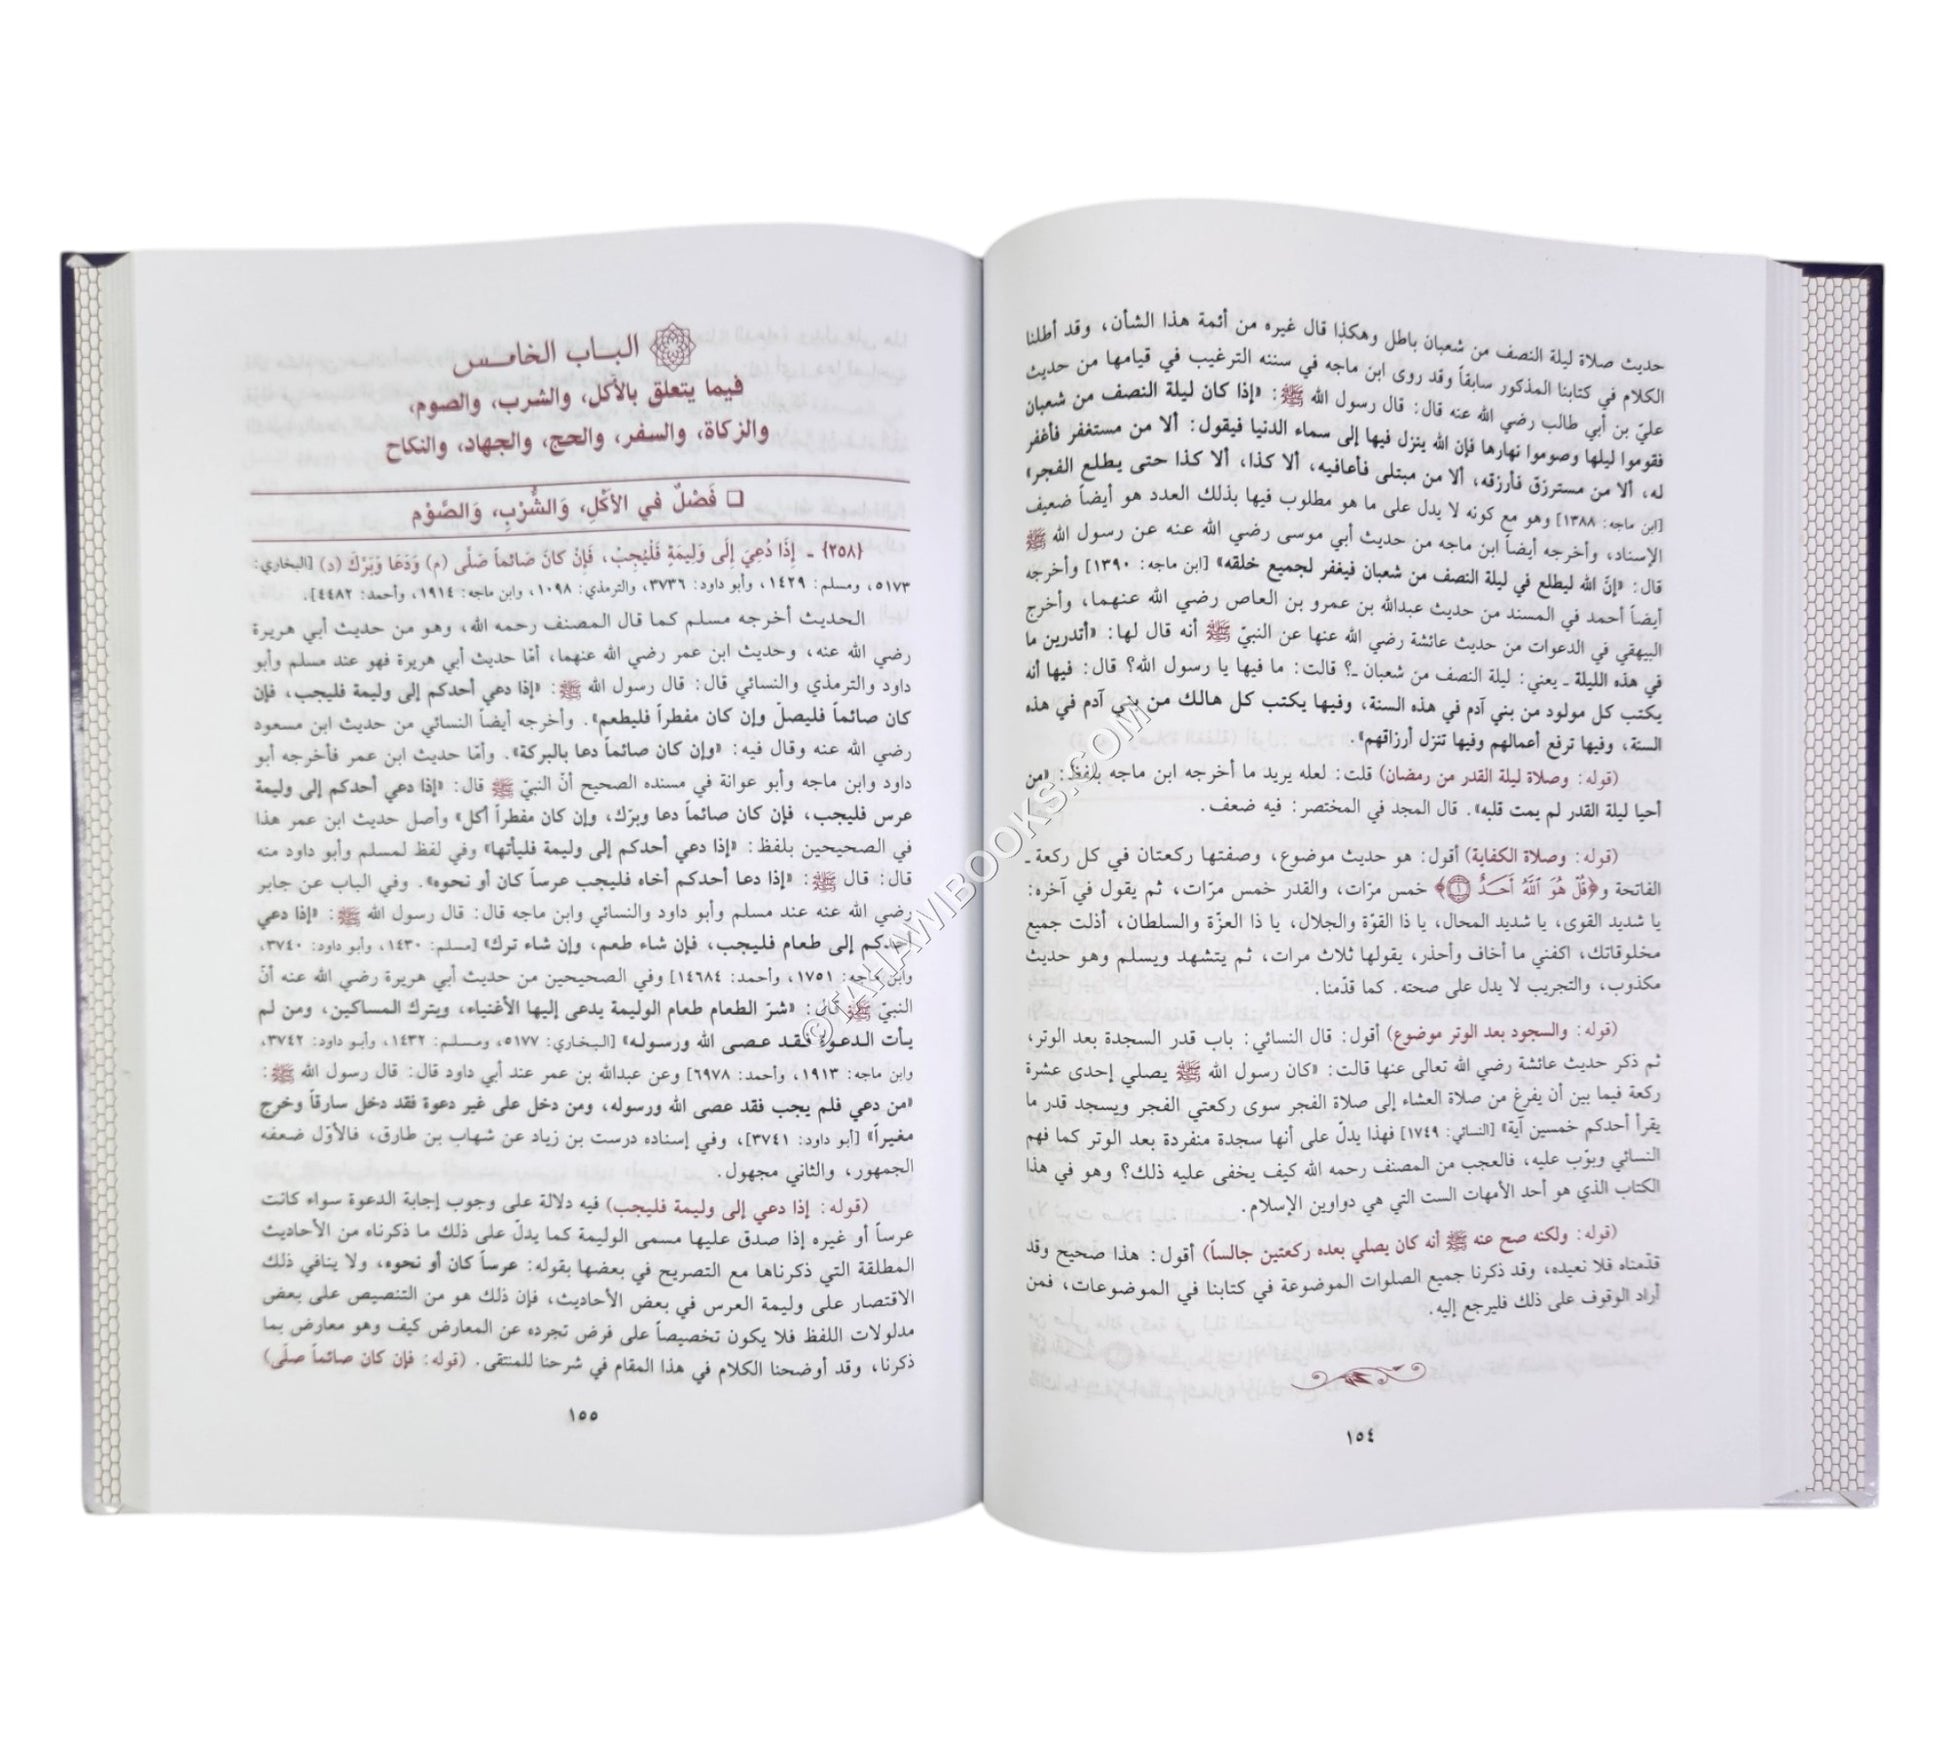 حديث صلاة ليلة النصف من شعبان باطل وهكذا قال غيره من أئمة هذا الشأن، وقد أطلنا
الكلام في كتابنا المذكور سابقاً وقد روى ابن ماجه في سننه الترغيب في قيامها من حديث
عليّ بن أبي طالب رضي الله عنه قال: قال رسول الله ﷺ: «إذا كان ليلة النصف من شعبان
فقوموا ليلها وصوموا نهارها فإن الله ينزل فيها إلى سماء الدنيا فيقول: ألا من مستغفر فأغفر
له، ألا من مسترزق فأرزقه، ألا من مبتلى فأعافيه، ألا كذا، ألا كذا حتى يطلع الفجر»
[ابن ماجه: ١٣٨٨] وهو مع كونه لا يدل على ما هو مطلوب فيها بذلك العدد هو أيضاً ضعيف
الإسناد، وأخرجه أيضاً ابن ماجه من حديث أبي موسى رضي الله عنه عن رسول الله ﷺ
قال: «إنّ الله ليطلع في ليلة النصف من شعبان فيغفر لجميع خلقه» [ابن ماجه: ١٣٩٠] وأخرجه
أيضاً أحمد في المسند من حديث عبدالله بن عمرو بن العاص رضي الله عنهما، وأخرج
البيهقي في الدعوات من حديث عائشة رضي الله عنها عن النبيّ ﷺ أنه قال لها: «أتدرين ما
في هذه الليلة ـ يعني: ليلة النصف من شعبان ـ؟ قالت: ما فيها يا رسول الله؟ قال: فيها أنه
يكتب كل مولود من بني آدم في هذه السنة، وفيها يكتب كل هالك من بني آدم في هذه
السنة، وفيها ترفع أعمالهم وفيها تنزل أرزاقهم».
(قوله: وصلاة ليلة القدر من رمضان) قلت: لعله يريد ما أخرجه ابن ماجه بلفظ: «من
أحيا ليلة القدر لم يمت قلبه». قال المجد في المختصر: فيه ضعف.
(قوله: وصلاة الكفاية) أقول: هو حديث موضوع، وصفتها ركعتان في كل ركعة ـ
الفاتحة و﴿قُلْ هُوَ ٱللَّهُ أَحَدٌ ۝١﴾ خمس مرّات، والقدر خمس مرّات، ثم يقول في آخره:
يا شديد القوى، يا شديد المحال، يا ذا القوّة والجلال، يا ذا العزّة والسلطان، أذلت جميع
مخلوقاتك، اكفني ما أخاف وأحذر، يقولها ثلاث مرات، ثم يتشهد ويسلم وهو حديث
مكذوب، والتجريب لا يدل على صحته. كما قدّمنا.
(قوله: والسجود بعد الوتر موضوع) أقول: قال النسائي: باب قدر السجدة بعد الوتر،
ثم ذكر حديث عائشة رضي الله تعالى عنها قالت: «كان رسول الله ﷺ يصلي إحدى عشرة
ركعة فيما بين أن يفرغ من صلاة العشاء إلى صلاة الفجر سوى ركعتي الفجر ويسجد قدر ما
يقرأ أحدكم خمسين آية» [النسائي: ١٧٤٩] فهذا يدلّ على أنها سجدة منفردة بعد الوتر كما فهم
النسائي وبوّب عليه، فالعجب من المصنف رحمه الله كيف يخفى عليه ذلك؟ وهو في هذا
الكتاب الذي هو أحد الأمهات الست التي هي دواوين الإسلام.
(قوله: ولكنه صح عنه ﷺ أنه كان يصلي بعده ركعتين جالساً) أقول: هذا صحيح وقد
قدّمناه فلا نعيده، وقد ذكرنا جميع الصلوات الموضوعة في كتابنا في الموضوعات، فمن
أراد الوقوف على ذلك فليرجع إليه.
١٥٤
الباب الخامس
فيما يتعلق بالأكل، والشرب، والصوم،
والزكاة، والسفر، والحج، والجهاد، والنكاح
❑ فَصْلٌ في الأكْلِ، وَالشُّرْبِ، وَالصَّوْم
{٣٥٨} ـ إِذَا دُعِيَ إِلَى وَلِيمَةٍ فَلْيُجِبْ، فَإِنْ كانَ صَائماً صَلَّى (م) وَدَعَا وَبَرَّكَ (د) [البخاري:
٥١٧٣، ومسلم: ١٤٢٩، وأبو داود: ٣٧٣٦، والترمذي: ١٠٩٨، وابن ماجه: ١٩١٤، وأحمد: ٤٤٨٢].
الحديث أخرجه مسلم كما قال المصنف رحمه الله، وهو من حديث أبي هريرة
رضي الله عنه، وحديث ابن عمر رضي الله عنهما، أمّا حديث أبي هريرة فهو عند مسلم وأبو
داود والترمذي والنسائي قال: قال رسول الله ﷺ: «إذا دعي أحدكم إلى وليمة فليجب، فإن
كان صائماً فليصلّ وإن كان مفطراً فليطعم». وأخرجه أيضاً النسائي من حديث ابن مسعود
رضي الله عنه وقال فيه: «وإن كان صائماً دعا بالبركة». وأمّا حديث ابن عمر فأخرجه أبو
داود وابن ماجه وأبو عوانة في مسنده الصحيح أنّ النبيّ ﷺ قال: «إذا دعي أحدكم إلى وليمة
عرس فليجب، فإن كان صائماً دعا وبرّك، وإن كان مفطراً أكل» وأصل حديث ابن عمر هذا
في الصحيحين بلفظ: «إذا دعي أحدكم إلى وليمة فليأتها» وفي لفظ لمسلم وأبو داود منه
قال: قال ﷺ: «إذا دعا أحدكم أخاه فليجب عرساً كان أو نحوه». وفي الباب عن جابر
رضي الله عنه عند مسلم وأبو داود والنسائي وابن ماجه قال: قال رسول الله ﷺ: «إذا دعي
أحدكم إلى طعام فليجب، فإن شاء طعم، وإن شاء ترك» [مسلم: ١٤٣٠، وأبو داود: ٣٧٤٠،
وابن ماجه: ١٧٥١، وأحمد: ١٤٦٨٤] وفي الصحيحين من حديث أبي هريرة رضي الله عنه أنّ
النبيّ ﷺ قال: «شرّ الطعام طعام الوليمة يدعى إليها الأغنياء، ويترك المساكين، ومن لم
يأت الدعوة فقد عصى الله ورسوله» [البخاري: ٥١٧٧، ومسلم: ١٤٣٢، وأبو داود: ٣٧٤٢،
وابن ماجه: ١٩١٣، وأحمد: ٦٩٧٨] وعن عبدالله بن عمر عند أبي داود قال: قال رسول الله ﷺ:
«من دعي فلم يجب فقد عصى الله ورسوله، ومن دخل على غير دعوة فقد دخل سارقاً وخرج
مغيراً» [أبو داود: ٣٧٤١]، وفي إسناده درست بن زياد عن شهاب بن طارق، فالأوّل ضعفه
الجمهور، والثاني مجهول.
(قوله: إذا دعي إلى وليمة فليجب) فيه دلالة على وجوب إجابة الدعوة سواء كانت
عرساً أو غيره إذا صدق عليها مسمى الوليمة كما يدلّ على ذلك ما ذكرناه من الأحاديث
المطلقة التي ذكرناها مع التصريح في بعضها بقوله: عرساً كان أو نحوه، ولا ينافي ذلك
الاقتصار على وليمة العرس في بعض الأحاديث، فإن ذلك هو من التنصيص على بعض
مدلولات اللفظ فلا يكون تخصيصاً على فرض تجرده عن المعارض كيف وهو معارض بما
ذكرنا، وقد أوضحنا الكلام في هذا المقام في شرحنا للمنتقى. (قوله: فإن كان صائماً صلّى)
١٥٥
©TAHAWIBOOKS.COM